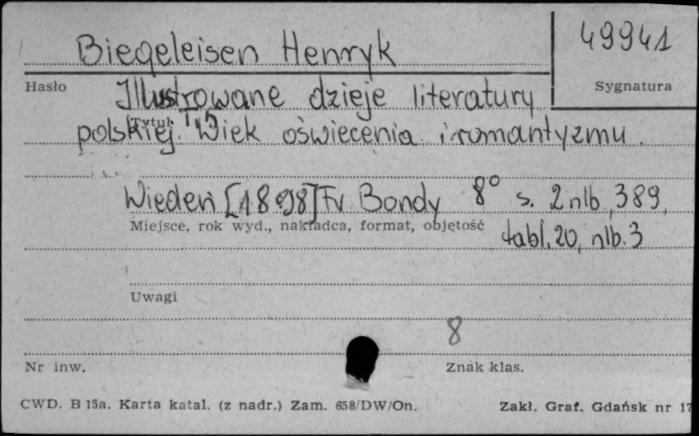 Biegeleisen Henryk
49941
Hasło
Sygnatura
Illustrowane dzieje literatury
Tytuł
polskiej. Wiek oświecenia i romantyzmu.
Wiedeń [1898] Fr Bondy 8° s. 2 nlb, 389,
Miejsce, rok wyd., nakładca, format, objętość
tabl. 20, nlb. 3
Uwagi
8
Nr inw.
Znak klas.
CWD. B 15a. Karta katal. (z nadr.) Zam. 658/DW/On.
Zakł. Graf. Gdańsk nr 17